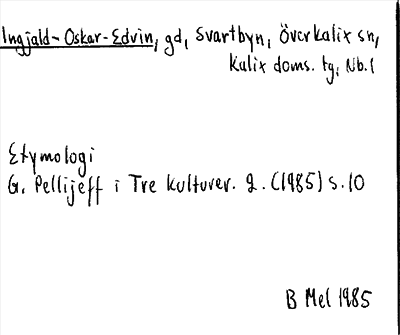 Ingjald-Oskar-Edvin, gd, Svartbyn, Överkalix sn,
Kalix doms. tg, Nb. l
Etymologi
G. Pellijeff i Tre kulturer. 2. (1985) s. 10
B Mel 1985